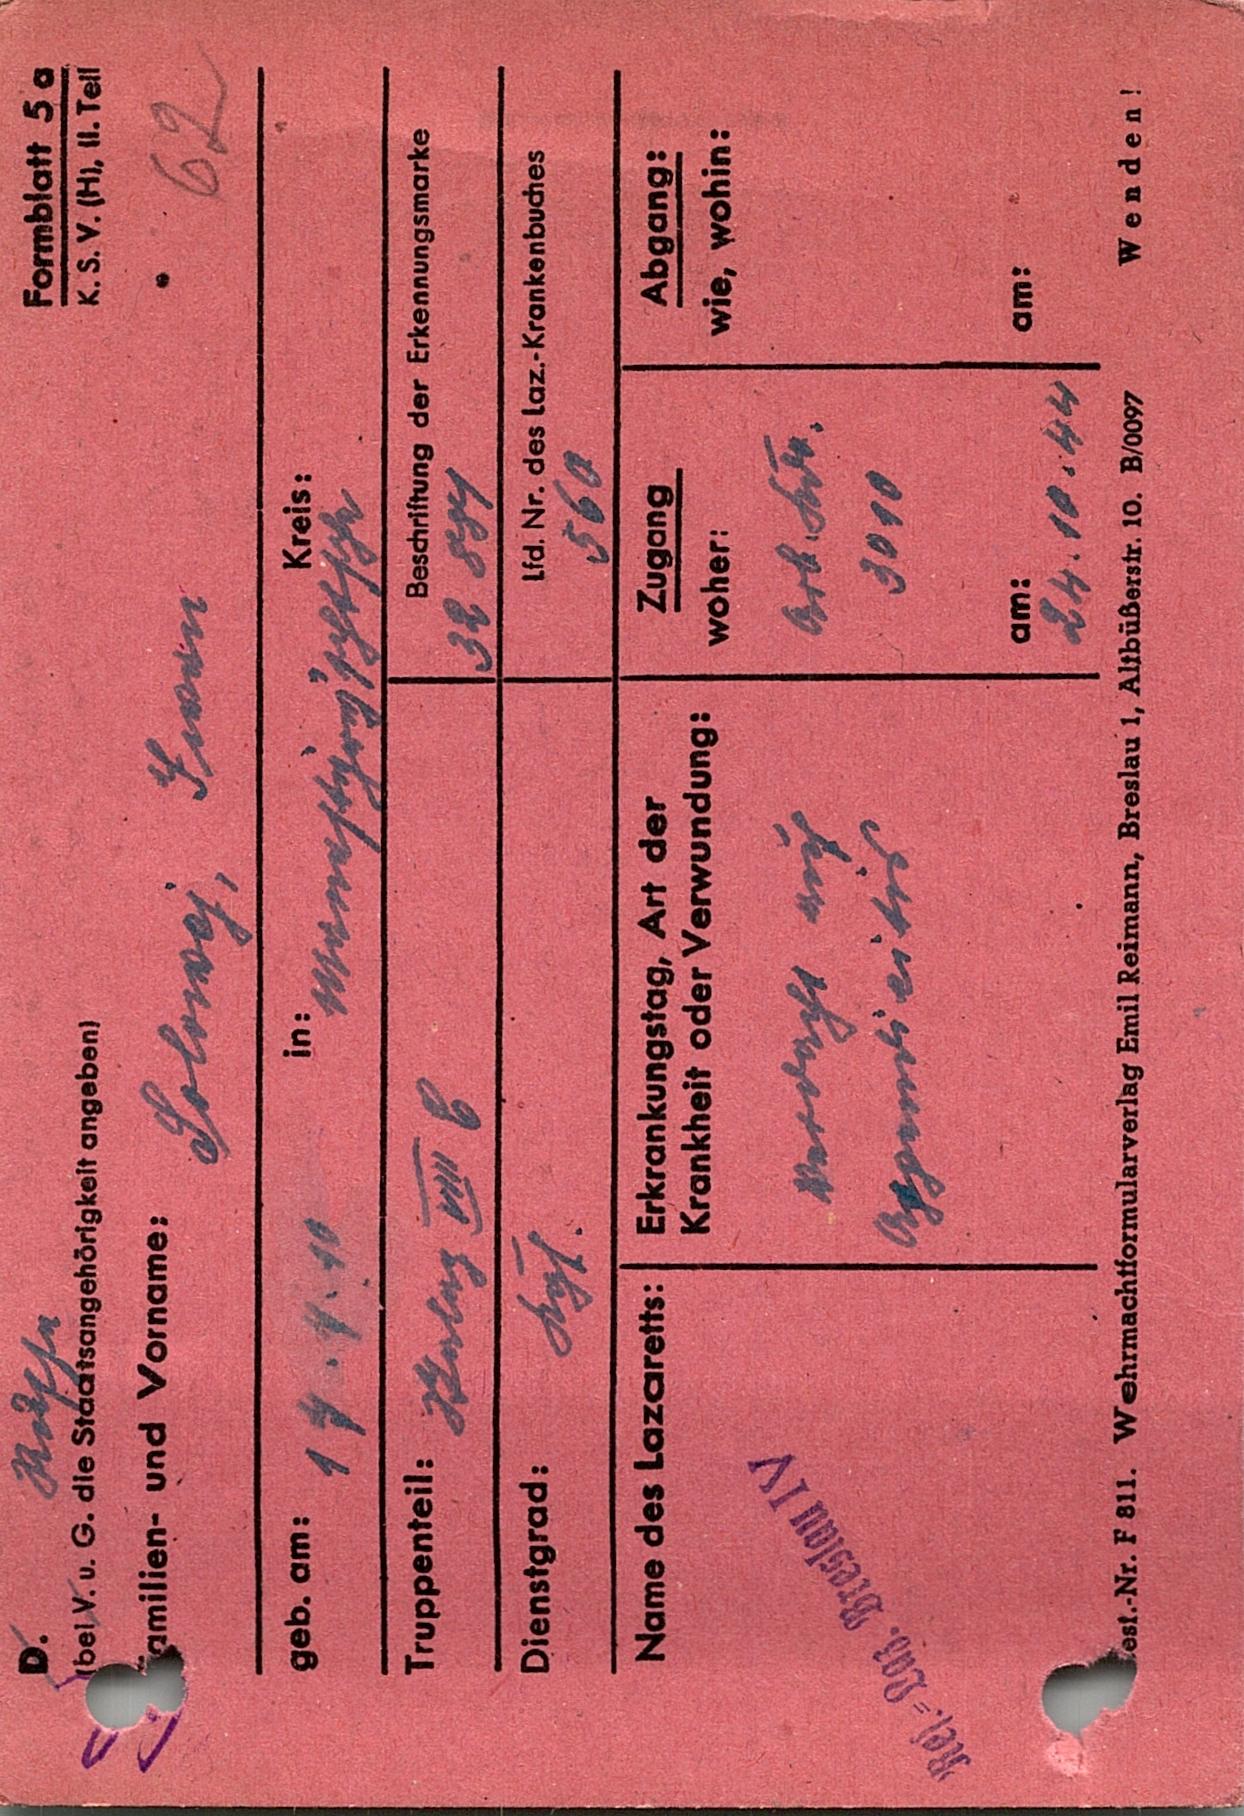 D. Russe
Formblatt 5a
(bei V. u. G. die Staatsangehörigkeit angeben)
K. S. V. (H), II. Teil
Familien- und Vorname:
Solowej, Iwan
62
geb. am: 14.4.10 in: Kreis:
Truppenteil: Stalag VIII C
Beschriftung der Erkennungsmarke
Dienstgrad:
Lfd. Nr. des Laz.-Krankenbuches
560
Name des Lazaretts:
Res.-Laz. Breslau IV
Erkrankungstag, Art der
Krankheit oder Verwundung:
Verdacht auf
Appendicitis
Zugang
woher:
Arb. Kdo.
3010
am:
24.10.44
Abgang:
wie, wohin:
am:
Best.-Nr. F 811. Wehrmachtformularverlag Emil Reimann, Breslau 1, Altbüßerstr. 10. B/0097 Wenden!